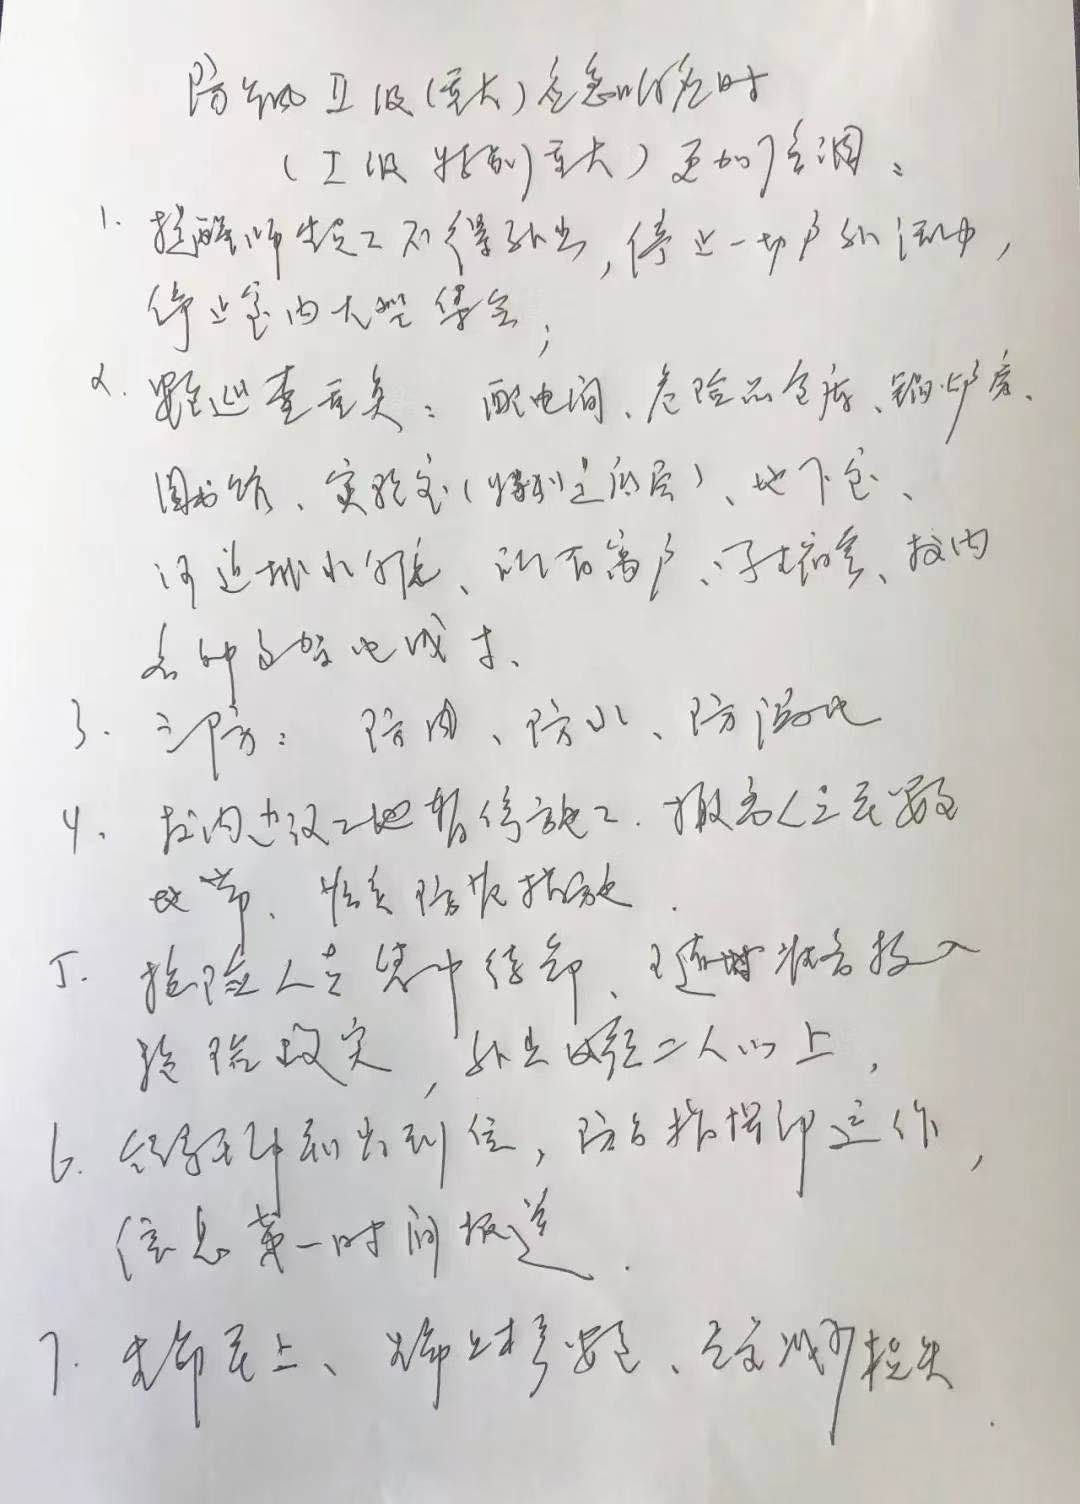 防台风II级(重大)应急响应时
(I级 特别重大)更加强调:
1. 提醒师生员工不得外出,停止一切户外活动,
停止室内大型集会;
2. 巡查重点:配电间、危险品仓库、锅炉房、
图书馆、实验室(特别是底层)、地下室、
河道排水、门窗户、学生宿舍、校内
各种电线
3. 三防:防雨、防水、防漏电
4. 校内建设工地暂停施工.撤离人员至安全
地带、落实防范措施.
5. 抢险人员集中待命、随时准备投入
抢险救灾,外出必须二人以上.
6. 领导干部到位,防台指挥部运作,
信息第一时间报送.
7. 生命至上、安全、减少损失.